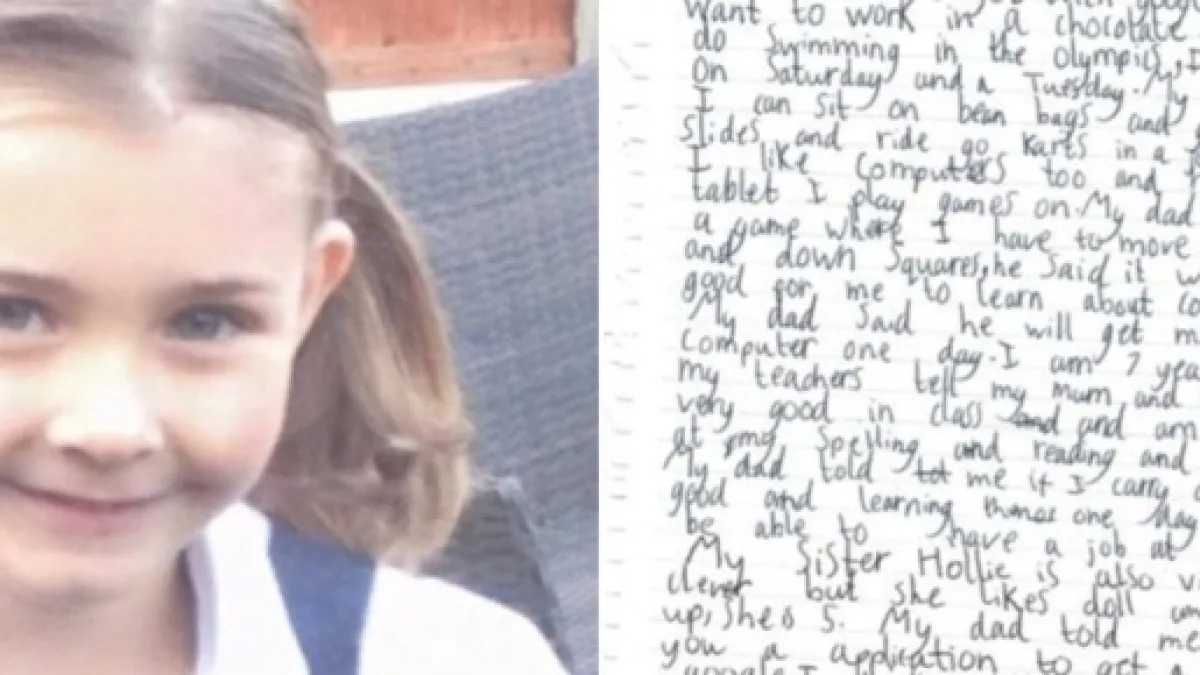 want to work in a chocolate
do swimming in the Olympics, I
On Saturday and a Tuesday. My
I can sit on bean bags and
slides and ride go karts in a
I like computers too and
tablet I play games on. My dad
a game where I have to move
and down squares, he said it
good for me to learn about
My dad said he will get
computer one day. I am 7
my teachers tell my mum and
very good in class and and am
at my spelling and reading and
My dad told me if I carry
good and learning one day
be able to have a job at
My sister Hollie is also
clever but she likes doll
up, she 5. My dad told me
you a application to get
google I